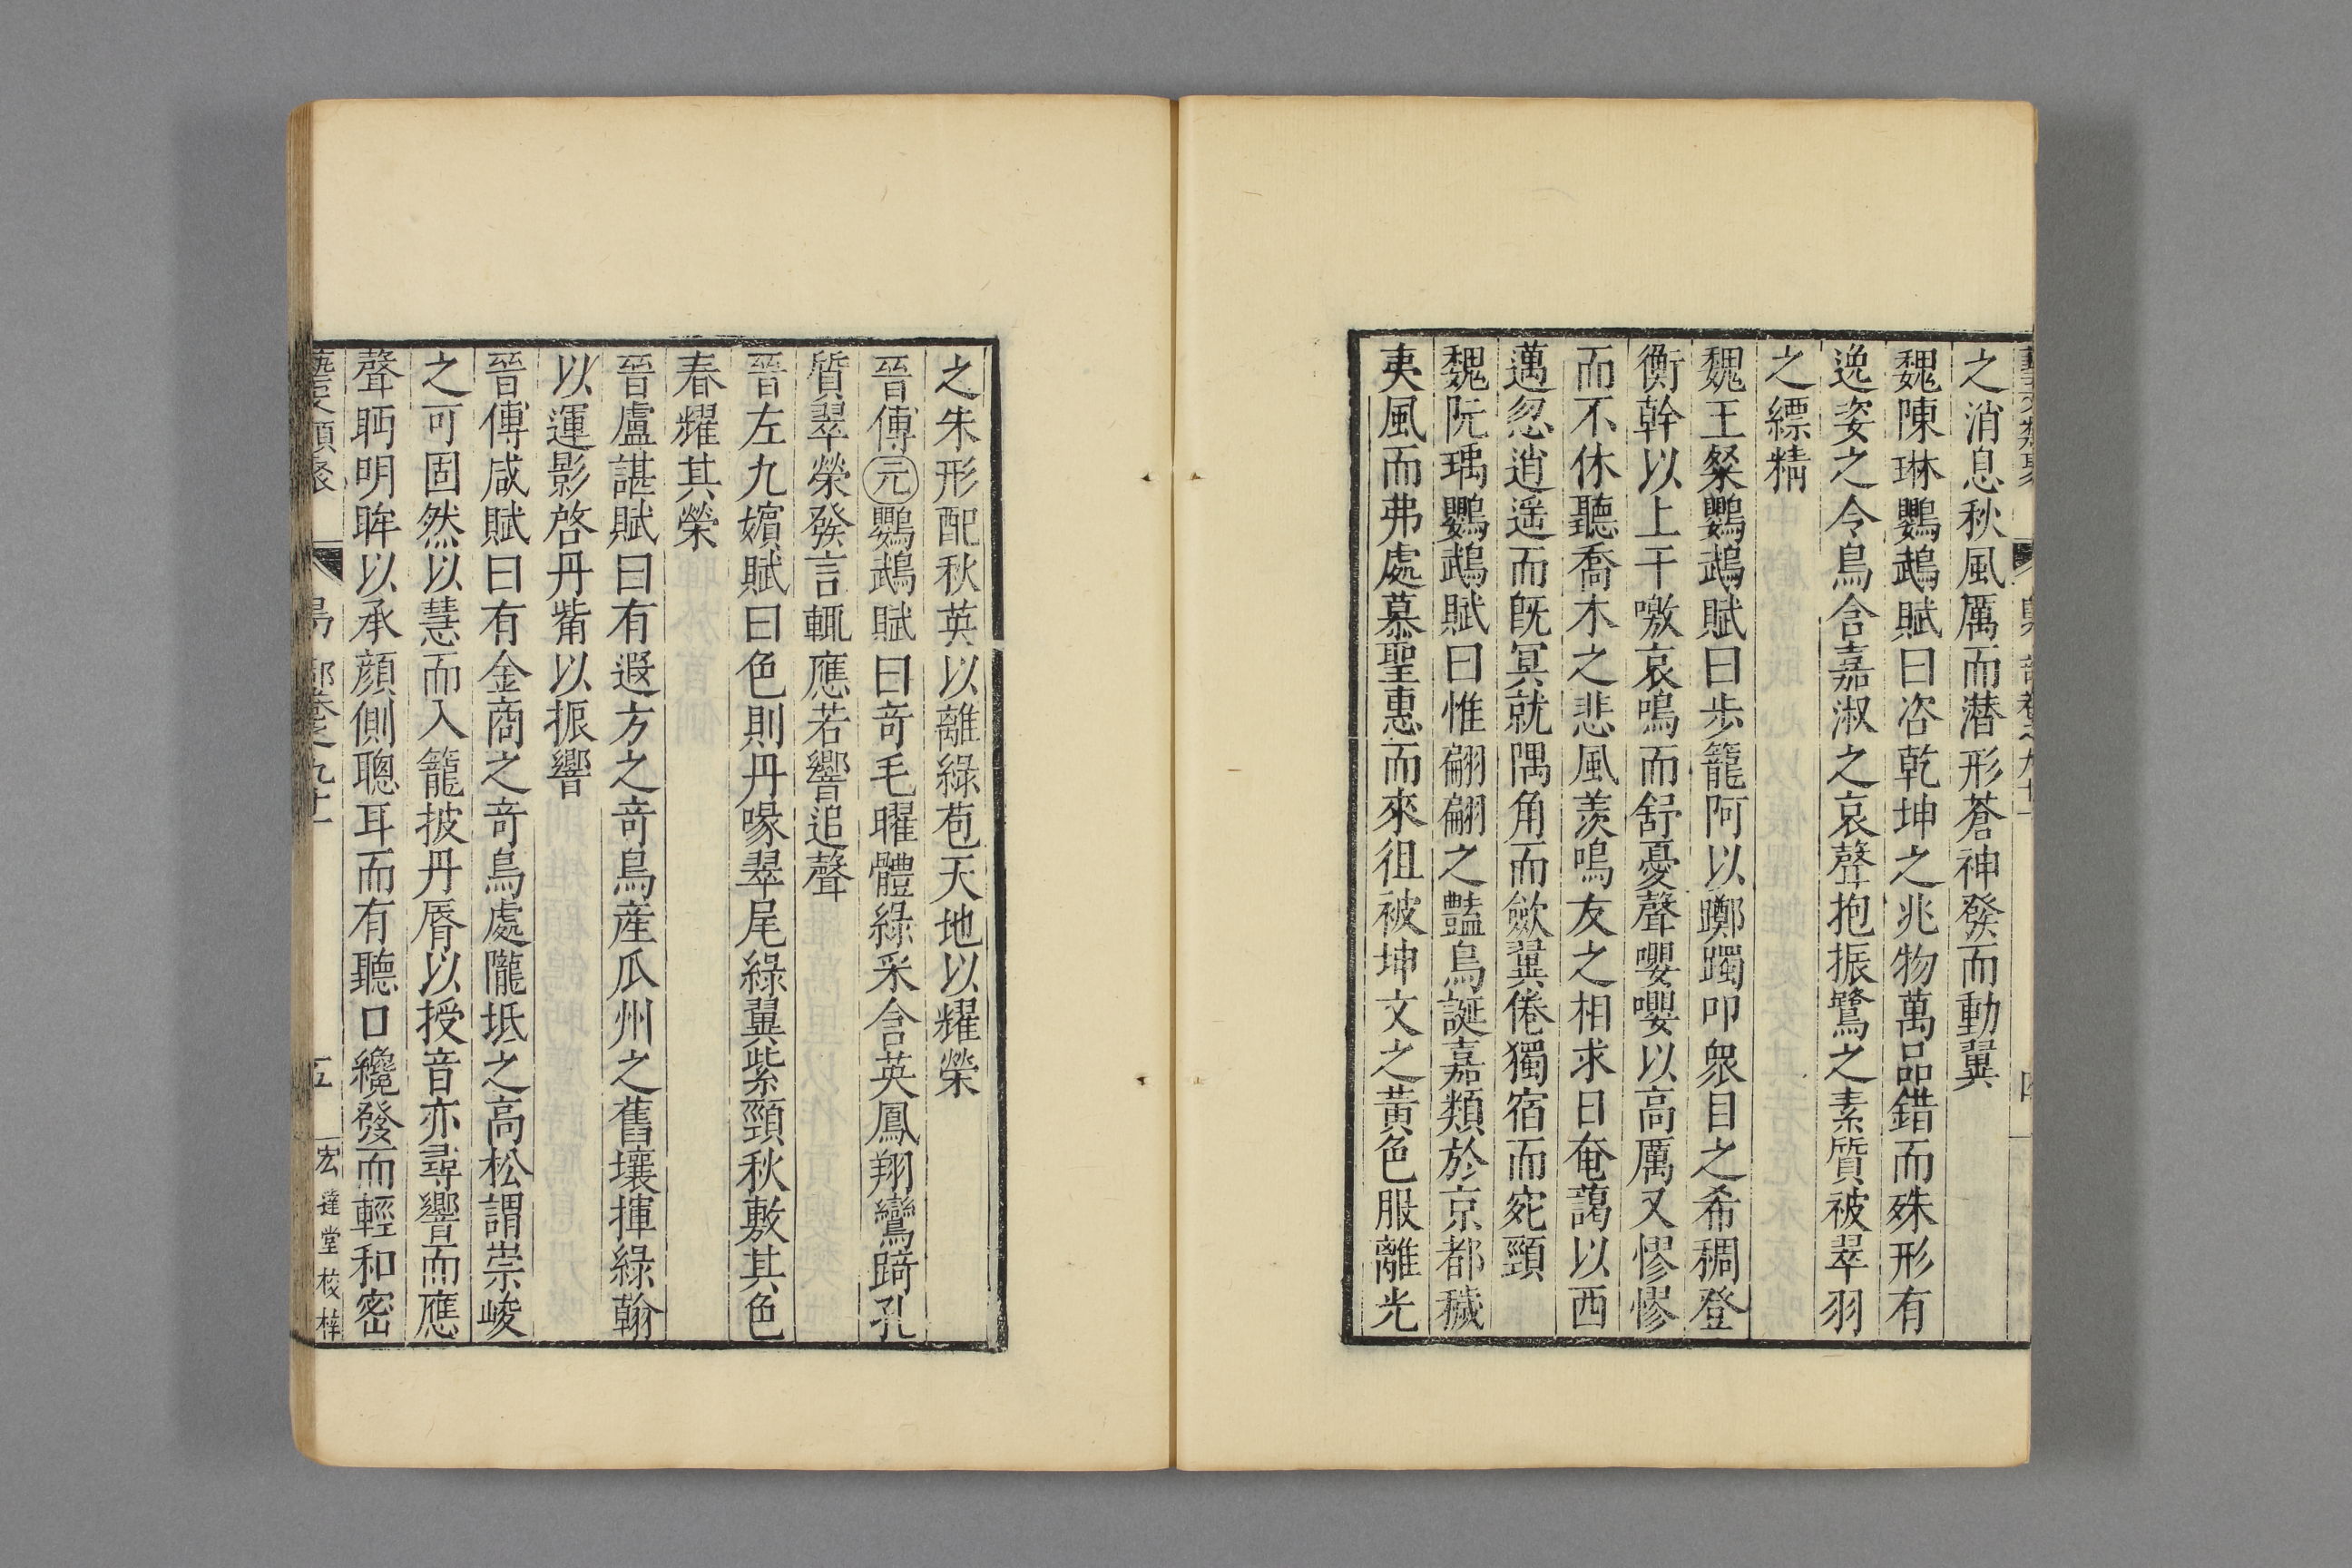 之消息秋風厲而潜形蒼神發而動翼
魏陳琳鸚鵡賦曰咨乾坤之兆物萬品錯而殊形有
逸姿之令鳥含嘉淑之哀聲抱振鷺之素質被翠羽
之縹精
魏王粲鸚鵡賦曰步籠阿以躑躅叩衆目之希稠登
衡幹以上干噭哀鳴而舒憂聲嚶嚶以高厲又憀憀
而不休聽喬木之悲風羨鳴友之相求日奄藹以西
邁忽逍遥而旣冥就隅角而歛翼倦獨宿而宛頸
魏阮瑀鸚鵡賦曰惟翩翩之豔鳥誕嘉類於京都穢
夷風而弗處慕聖惠而來徂被坤文之黄色服離光
之朱形配秋英以離綠苞天地以耀榮
晉傅元鸚鵡賦曰竒毛曜體綠采含英鳳翔鸞跱孔
質翠榮發言輒應若響追聲
晉左九嬪賦曰色則丹喙翠尾綠翼紫頸秋敷其色
春耀其榮
晉盧諶賦曰有遐方之竒鳥産瓜州之舊壤揮綠翰
以運影啓丹觜以振響
晉傅咸賦曰有金商之竒鳥處隴坻之高松謂崇峻
之可固然以慧而入籠披丹脣以授音亦尋響而應
聲眄明眸以承顔側聰耳而有聽口纔發而輕和密
五
宏達堂校梓